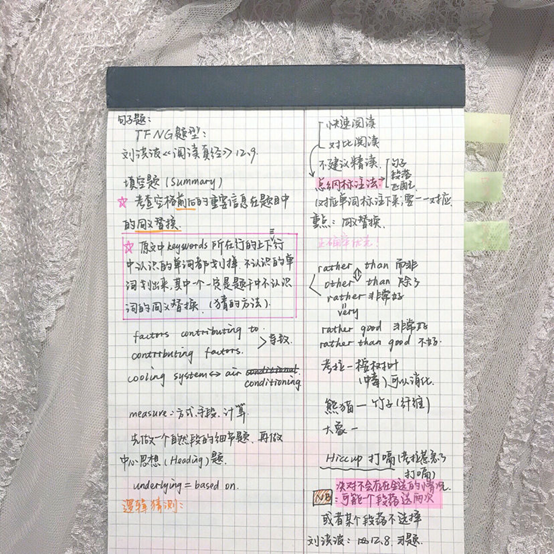 句子题:
TFNG题型:
刘洪波《阅读真经》12.9.
填空题 (Summary)
☆ 考查空格前后的重要信息在题目中
的同义替换.
☆ 原文中keywords 所在行的上下三行
中认识的单词都划掉, 不认识的单
词划出来, 其中一定是题干中不认识
词的同义替换. (猜的方法).
factors contributing to.
contributing factors. > 导致.
cooling system ↔ air conditional
conditioning
measure: 方式, 手段, 计算
先做一个自然段的细节题, 再做
中心思想 (Heading) 题.
underlying = based on.
逻辑猜测:
快速阅读
对比阅读
不建议精读.
点纲标注法 句子 段落
仅对应单词标注下来, 需一一对应.
重点: 同义替换.
rather than 而非
other than 除了
rather 非常好
=
very
rather good 非常好
rather than good 不好.
考拉 — 桉树叶
(有毒) 可以消化.
熊猫 — 竹子 (纤维)
大象 —
Hiccup 打嗝
打嗝)
NB
: 可能一个段落选两次
或者某个段落不选择
刘洪波: 12.8. 习题.